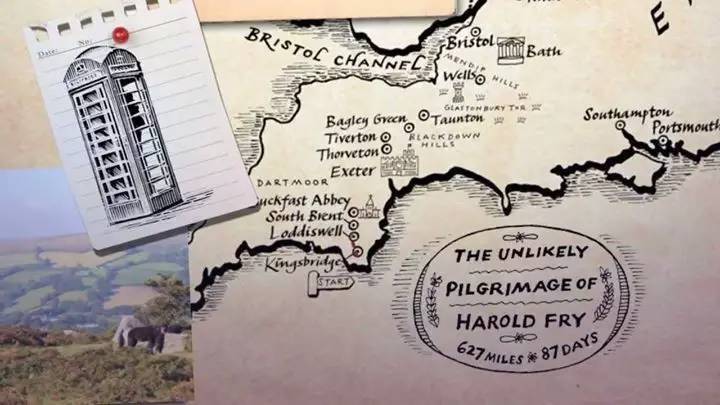 Date: No:
TELEPHONE
BRISTOL CHANNEL
Bristol
Bath
MENDIP HILLS
Wells
GLASTONBURY TOR
Taunton
Bagley Green
BLACKDOWN
HILLS
Tiverton
Thorverton
Exeter
Southampton
Portsmouth
DARTMOOR
uckfast Abbey
South Brent
Loddiswell
Kingsbridge
START
THE UNLIKELY
PILGRIMAGE OF
HAROLD FRY
627 MILES * 87 DAYS
E